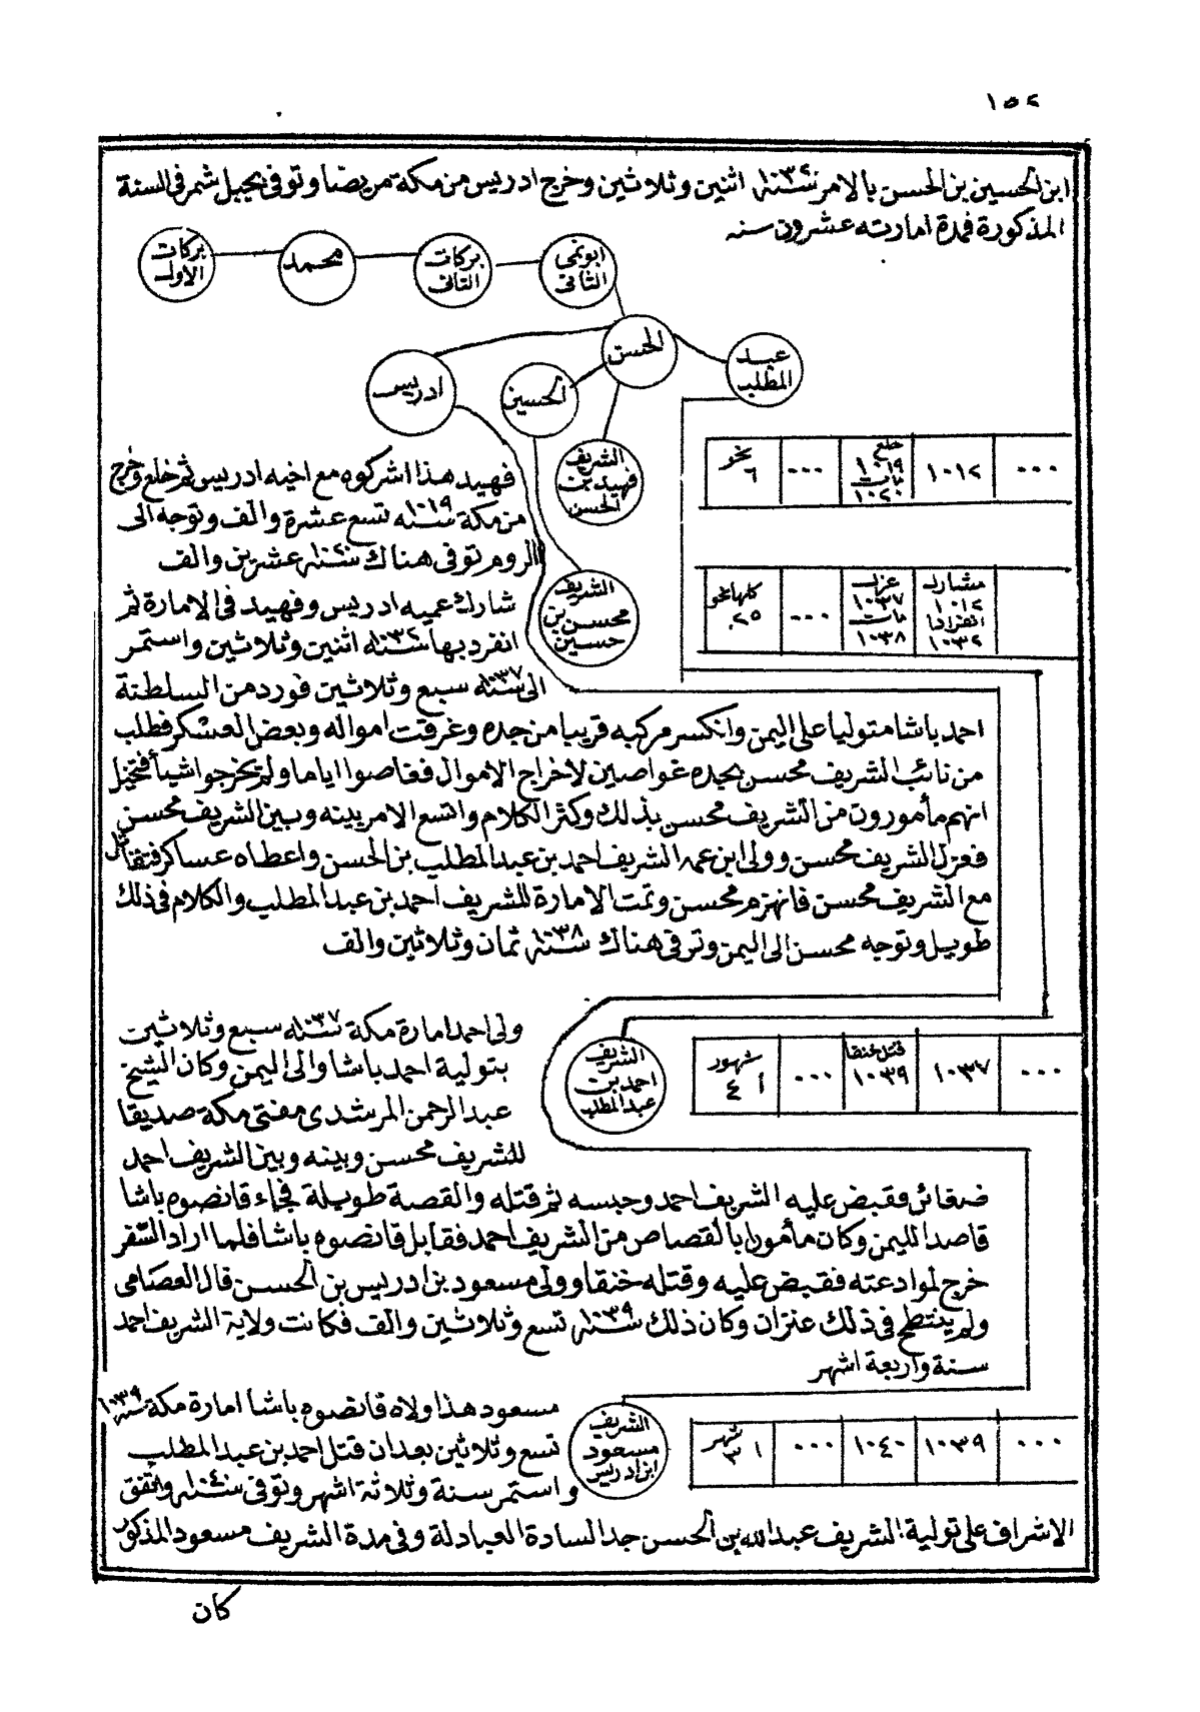 ١٥٢
ابن الحسين بن الحسن بالامر سنة ١٠٣٢ اثنين وثلاثين وخرج ادريس من مكة مريضا وتوفى بجبل شمر فى السنة
المذكورة فمدة امارته عشرون سنه
ابو نمى الثانى
بركات الثانى
محمد
بركات الاول
الحسن
عبد المطلب
الحسين
ادريس
الشريف فهيد بن الحسن
...
١٠١٢
خلع ١٠١٩ مات ١٠٢٠
...
نحو ٦
فهيد هذا اشركوه مع اخيه ادريس ثم خلع وخرج
من مكة سنه ١٠١٩ تسع عشرة والف وتوجه الى
الروم توفى هناك سنة ١٠٢٠ عشرين والف
الشريف محسن بن حسين
مشارك ١٠١٢ انفرادا ١٠٣٢
عزل ١٠٣٧ مات ١٠٣٨
...
كلها نحو ٢٥
شارك عميه ادريس وفهيد فى الامارة ثم
انفرد بها سنة ١٠٣٢ اثنين وثلاثين واستمر
الى سنة ١٠٣٧ سبع وثلاثين فورد من السلطنة
احمد باشا متوليا على اليمن وانكسر مركبه قريبا من جده وغرقت امواله وبعض العسكر فطلب
من نائب الشريف محسن بجده غواصين لاخراج الاموال فغاصوا اياما ولم يخرجوا شيأ فتخيل
انهم مأمورون من الشريف محسن بذلك وكثر الكلام واتسع الامر بينه وبين الشريف محسن
فعزل الشريف محسن وولى ابن عمه الشريف احمد بن عبد المطلب بن الحسن واعطاه عساكر فتقاتل
مع الشريف محسن فانهزم محسن وتمت الامارة للشريف احمد بن عبد المطلب والكلام فى ذلك
طويل وتوجه محسن الى اليمن وتوفى هناك سنة ١٠٣٨ ثمان وثلاثين والف
الشريف احمد بن عبد المطلب
...
١٠٣٧
قتل خنقا ١٠٣٩
...
شهور ٤ ١
ولى احمد امارة مكة سنة ١٠٣٧ سبع وثلاثين
بتولية احمد باشا والى اليمن وكان الشيخ
عبد الرحمن المرشدى مفتى مكة صديقا
للشريف محسن وبينه وبين الشريف احمد
ضغائن فقبض عليه الشريف احمد وحبسه ثم قتله والقصة طويلة فجاء قانصوه باشا
قاصدا لليمن وكان مأمورا بالقصاص من الشريف احمد فقابل قانصوه باشا فلما اراد السفر
خرج لموادعته فقبض عليه وقتله خنقا وولى مسعود بن ادريس بن الحسن قال العصامى
ولم ينتطح فى ذلك عنزان وكان ذلك سنة ١٠٣٩ تسع وثلاثين والف فكانت ولاية الشريف احمد
سنة واربعة اشهر
الشريف مسعود ابن ادريس
...
١٠٣٩
١٠٤٠
...
شهر ٣ ١
مسعود هذا ولاه قانصوه باشا امارة مكة سنة ١٠٣٩
تسع وثلاثين بعد ان قتل احمد بن عبد المطلب
واستمر سنة وثلاثة اشهر وتوفى سنة ١٠٤٠ واتفق
الاشراف على تولية الشريف عبد الله بن الحسن جد السادة العبادلة وفى مدة الشريف مسعود المذكور
كان